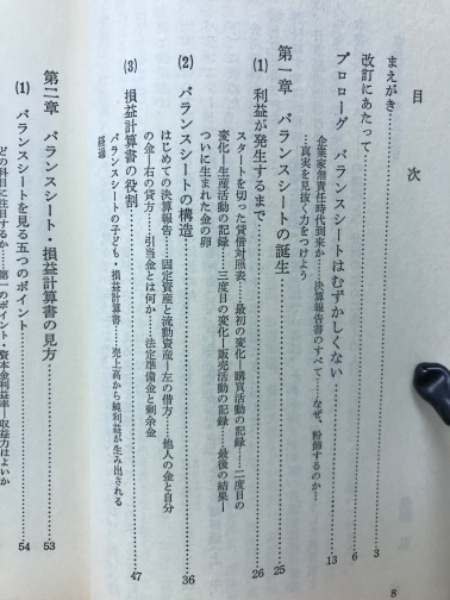 目次
まえがき……3
改訂にあたって……6
プロローグ バランスシートはむずかしくない……13
企業家無責任時代到来か……決算報告書のすべて……なぜ、粉飾するのか…
…真実を見抜く力をつけよう
第一章 バランスシートの誕生……25
(1) 利益が発生するまで……26
スタートを切った貸借対照表……最初の変化―購買活動の記録……二度目の
変化―生産活動の記録……三度目の変化―販売活動の記録……最後の結果―
ついに生まれた金の卵
(2) バランスシートの構造……36
はじめての決算報告……固定資産と流動資産―左の借方……他人の金と自分
の金―右の貸方……引当金とは何か……法定準備金と剰余金
(3) 損益計算書の役割……47
バランスシートの子ども・損益計算書……売上高から純利益が生み出される
経過
第二章 バランスシート・損益計算書の見方……53
(1) バランスシートを見る五つのポイント……54
どの科目に注目するか……第一のポイント・資本金利益率―収益力はよいか
8